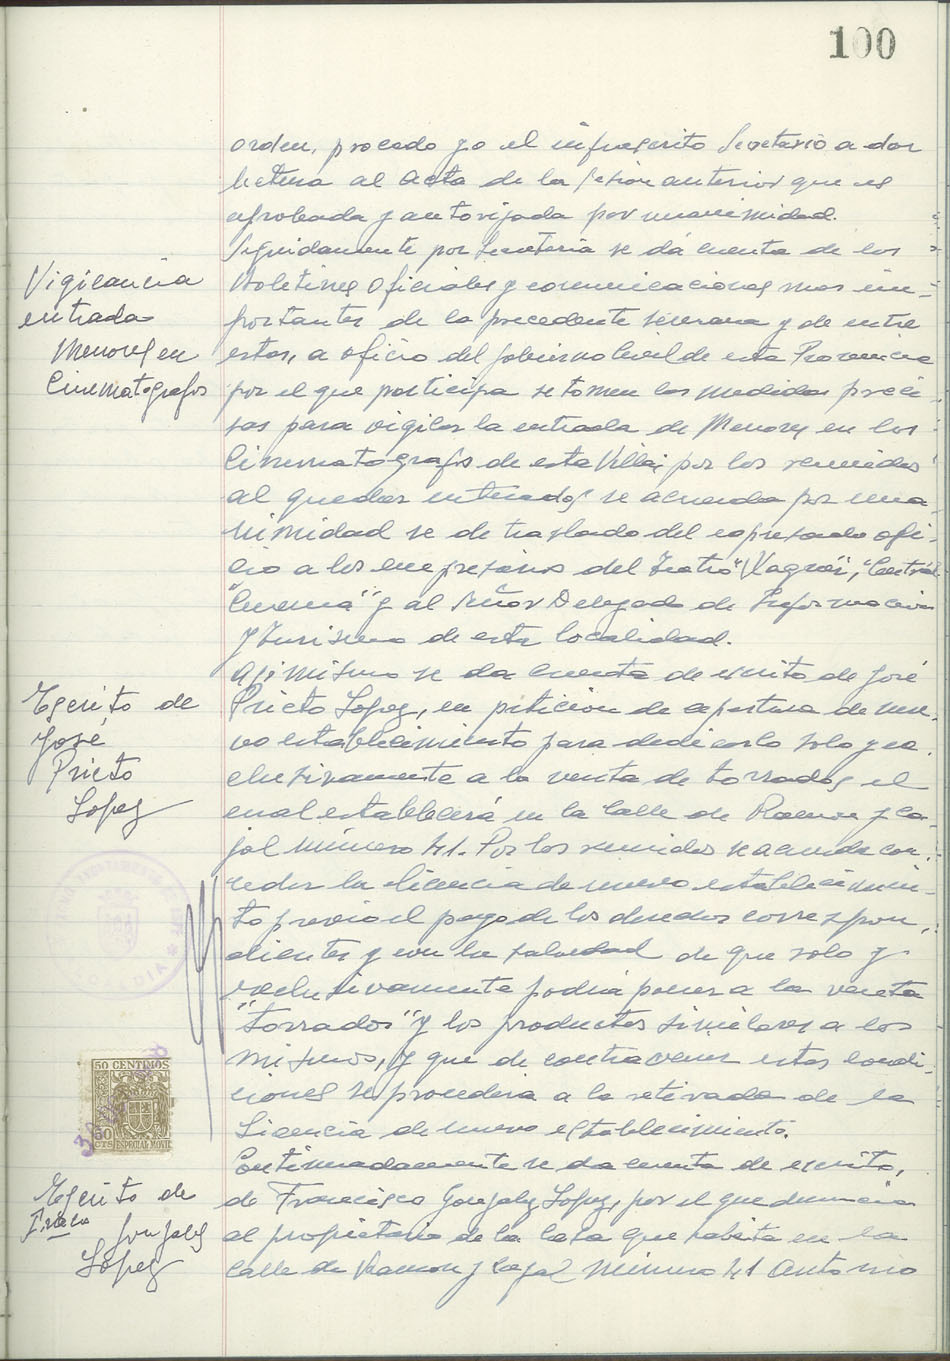 100
orden, procedo yo el infrascrito Secretario a dar
lectura al acta de la sesion anterior que es
aprobada y autorizada por unanimidad.
Seguidamente por Secretaria se dá cuenta de los
Vigilancia
entrada
Menores en
Cinematografos
Boletines Oficiales y comunicaciones mas im-
portantes de la precedente semana y de entre
estas, a oficio del Gobierno Civil de esta Provincia
por el que participa se tomen las medidas preci-
sas para vigilar la entrada de Menores en los
Cinematografos de esta Villa; por los reunidos
al quedar enterados se acuerda por una-
nimidad se de traslado del expresado ofi-
cio a los empresarios del Teatro "Wagner", "Central
Cinema" y al Señor Delegado de Información
y Turismo de esta localidad.
Asi mismo se da cuenta de escrito de José
Escrito de
José
Prieto
Lopez
Prieto Lopez, en petición de apertura de nue-
vo establecimiento para dedicarlo solo y ex-
clusivamente a la venta de torrados, el
cual establecerá en la Calle de Ramon y Ca-
jal número 41. Por los reunidos se acuerda con-
ceder la licencia de nuevo establecimien-
to previo el pago de los derechos correspon-
dientes y con la salvedad de que solo y
exclusivamente podrá poner a la venta
"torrados" y los productos similares a los
mismos, y que de contravenir estas condi-
ciones se procederá a la retirada de la
Licencia de nuevo establecimiento.
50 CENTIMOS
50
CTS ESPECIAL MOVIL
ALCALDIA
Continuadamente se da cuenta de escrito,
Escrito de
Frco
Gonzalez
Lopez
de Francisco Gonzalez Lopez, por el que denuncia
al propietario de la Casa que habita en la
Calle de Ramon y Cajal número 41 Antonio